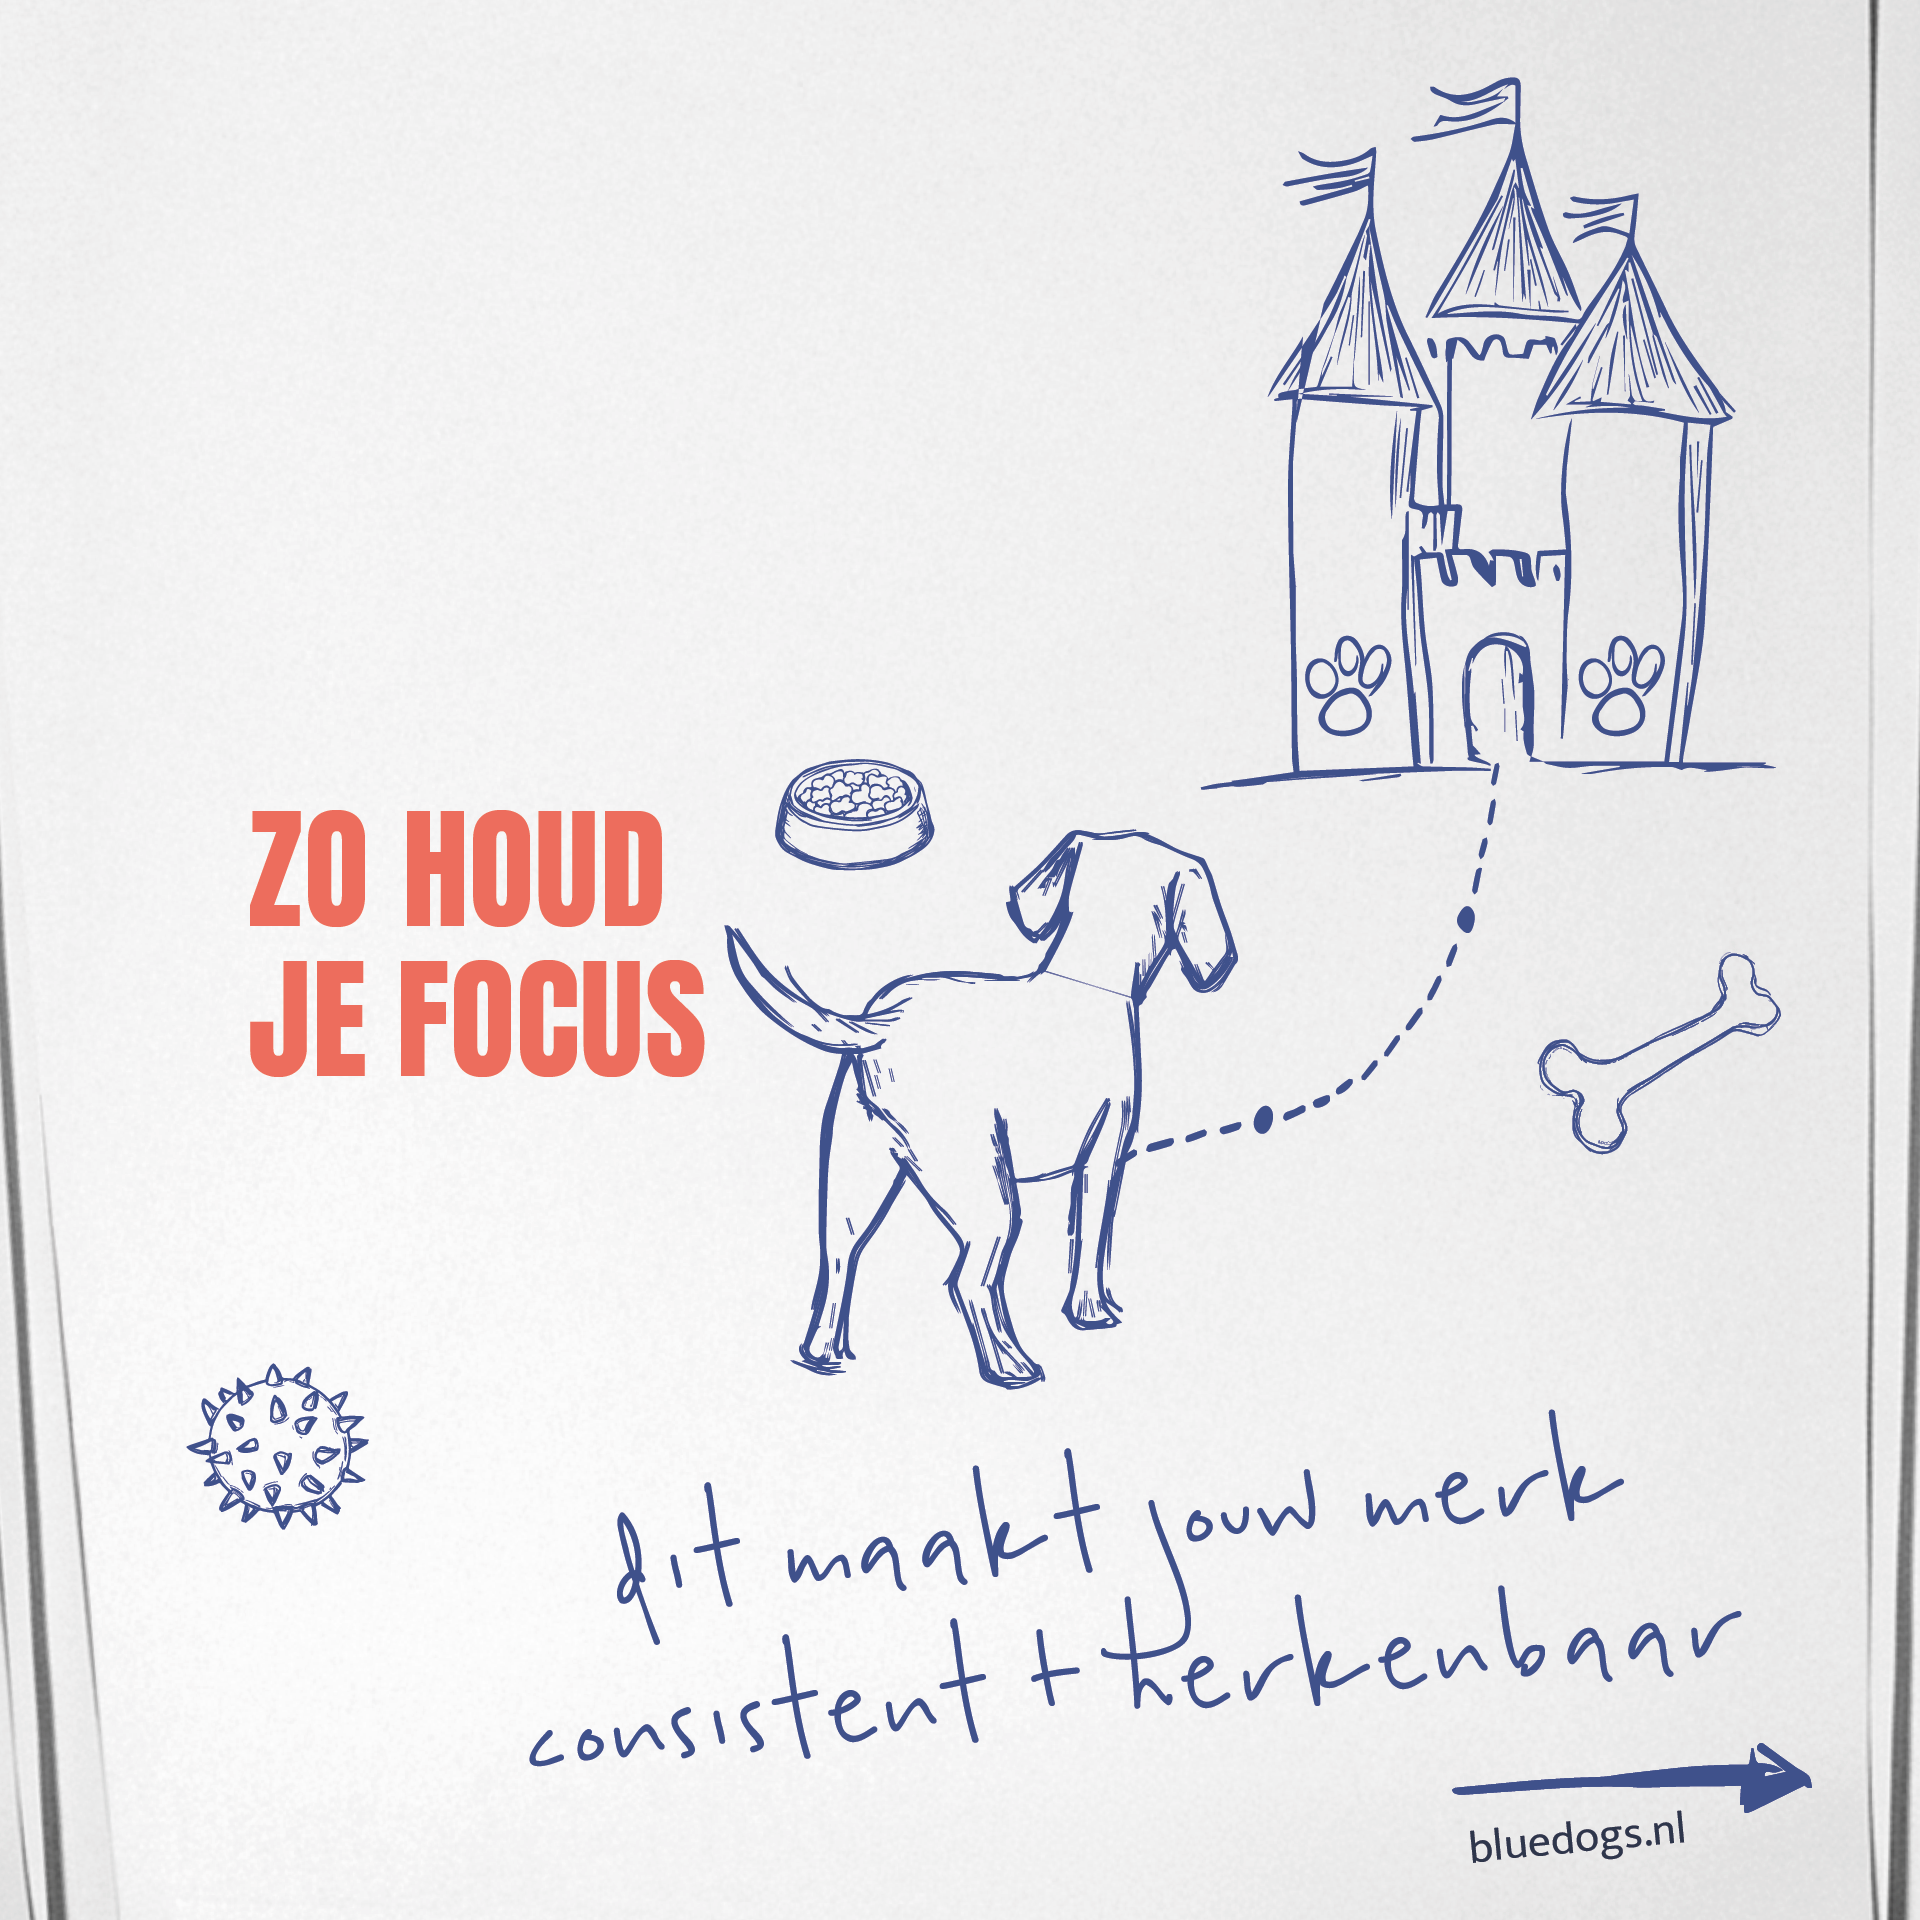 ZO HOUD
JE FOCUS
dit maakt jouw merk
consistent + herkenbaar
bluedogs.nl